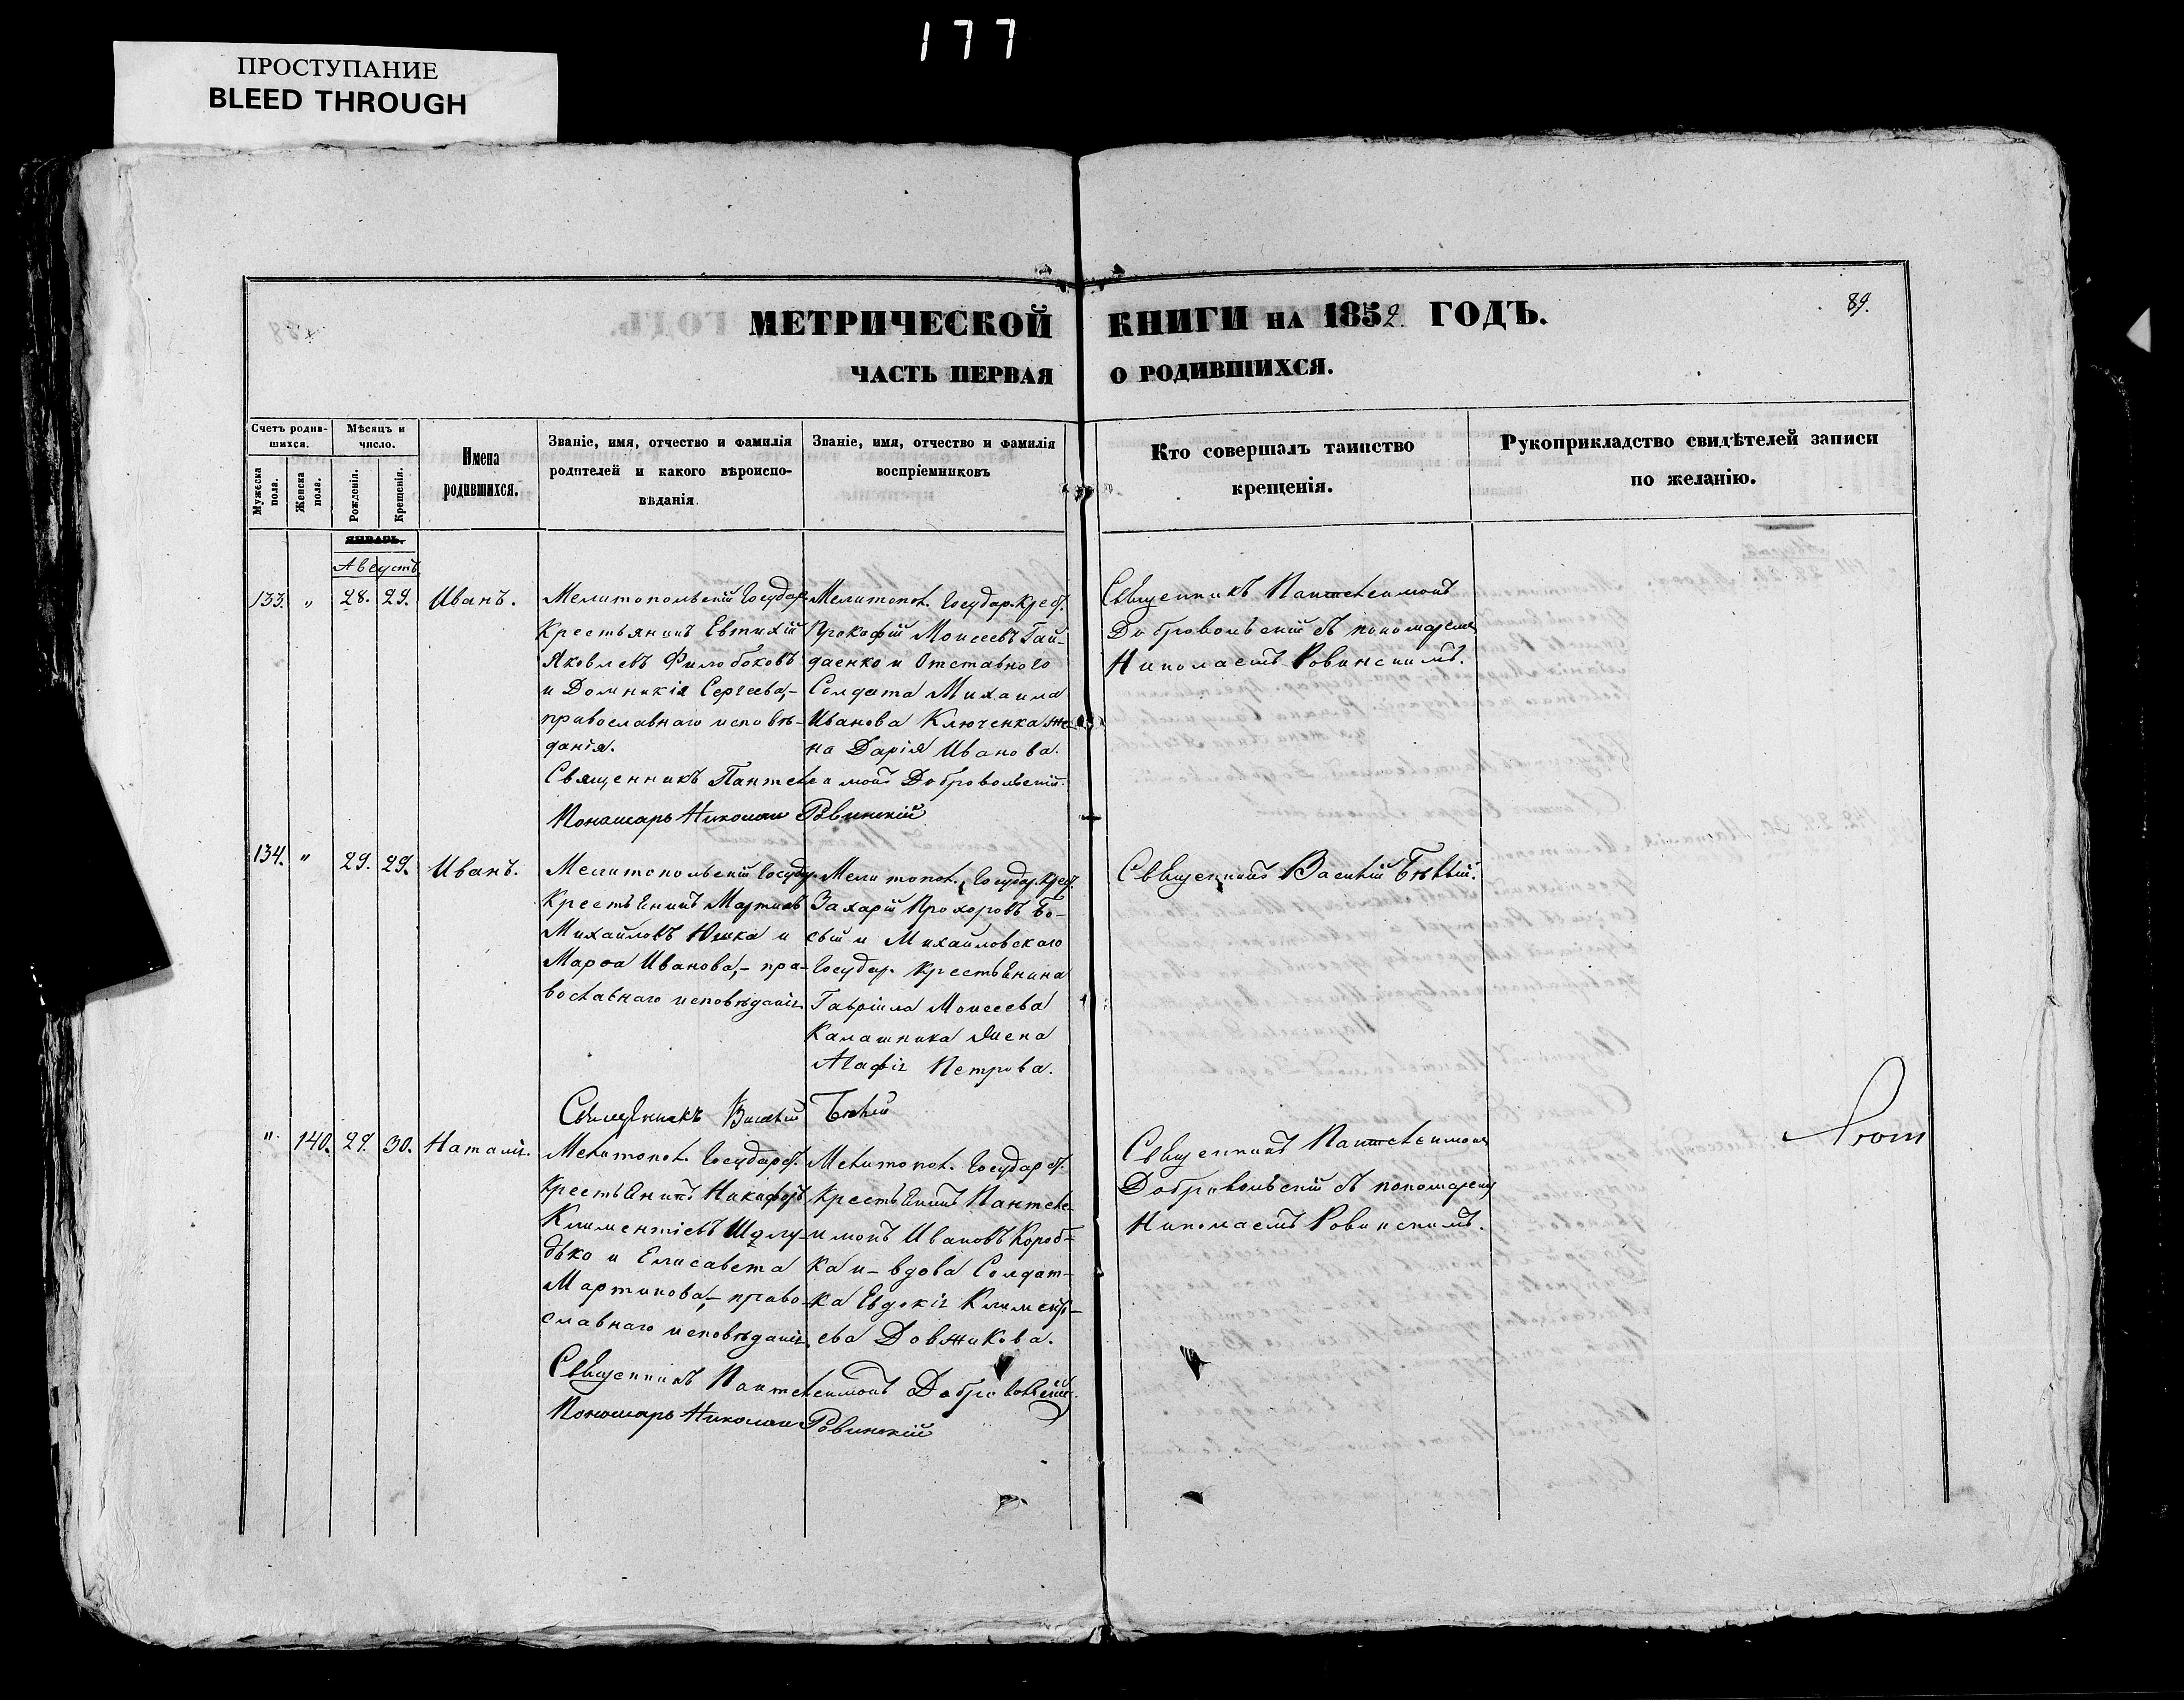 177
ПРОСТУПАНИЕ
BLEED THROUGH
МЕТРИЧЕСКОЙ КНИГИ НА 1852 ГОДЪ.
89.
ЧАСТЬ ПЕРВАЯ О РОДИВШИХСЯ.
Счетъ родив-
шихся.
Мужеска пола.
Женска пола.
Мѣсяцъ и
число.
Рожденія.
Крещенія.
Имена
родившихся.
Званіе, имя, отчество и фамилія
родителей и какого вѣроиспо-
вѣданія.
Званіе, имя, отчество и фамилія
воспріемниковъ
Кто совершалъ таинство
крещенія.
Рукоприкладство свидѣтелей записи
по желанію.
ЯНВАРЬ.
Августъ
133. " 28. 29. Иванъ.
Мелитопольскій Государ.
Крестьянинъ Евтихій
Яковлевъ Филобоковъ
и Домникія Сергеева,-
православнаго исповѣ-
данія.
Мелитопол. Государ. Крест.
Прокофій Моисеевъ Гай-
даенко и Отставного
Солдата Михаила
Иванова Ключенка же-
на Дарія Иванова.
Священникъ Пантелеимонъ
Добровольскій съ пономаремъ
Николаемъ Ровинскимъ.
Священникъ Пантелеимонъ Добровольскій.
Пономарь Николай Ровинскій
134. " 29. 29. Иванъ.
Мелитопольскій Государ.
Крестьянинъ Мартинъ
Михайловъ Юшка и
Марѳа Иванова,- пра-
вославнаго исповѣданія.
Мелитопол. Государ. Крест.
Захарій Прохоровъ Бо-
сый и Михайловскаго
Государ. Крестьянина
Гавріила Моисеева
Калашника жена
Агафія Петрова.
Священникъ Василій Бѣлый.
Священникъ Василій Бѣлый
" 140. 29. 30. Наталія.
Мелитопол. Государст.
Крестьянинъ Никифоръ
Климентіевъ
и Елисавета
Мартинова,- право-
славнаго исповѣданія.
Мелитопол. Государст.
Крестьянинъ Пантеле-
имонъ Ивановъ Короб-
ка и- вдова Солдат-
ка Евдокія Клименть-
ева Довжикова.
Священникъ Пантелеимонъ
Добровольскій съ пономаремъ
Николаемъ Ровинскимъ.
Священникъ Пантелеимонъ Добровольскій
Пономарь Николай Ровинскій